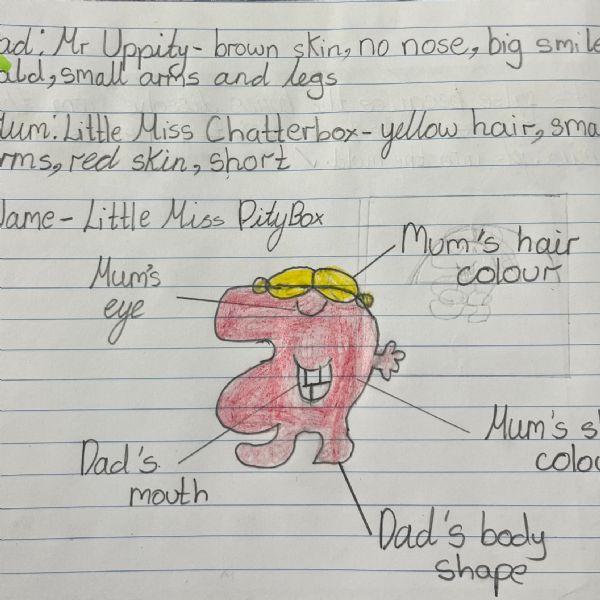 ad: Mr Uppity- brown skin, no nose, big smile
ald, small arms and legs
Mum: Little Miss Chatterbox- yellow hair, sma
rms, red skin, short
Name - Little Miss PityBox
Mum's hair
colour
Mum's
eye
Mum's s
colou
Dad's
mouth
Dad's body
shape